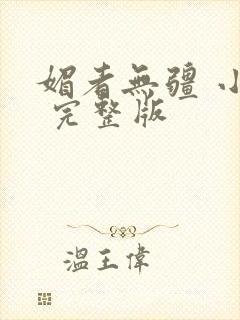 媚者無疆 小
完整版
溫王偉